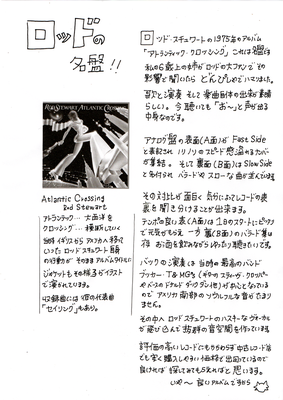 ロッドの
名盤!!
ROD STEWART ATLANTIC CROSSING
Atlantic Crossing
Rod Stewart
アトランティック… 大西洋を
クロッシング… 横断していく
当時 イギリスから アメリカへ 移って
いった ロッド スチュワート 自身
の行動が そのまま アルバムタイトルに
ジャケットもその様子がイラスト
で 演されています。
収録曲には 彼の代表曲
「セイリング」もあり。
ロッド・スチュワートの1975年のアルバム
「アトランティック・クロッシング」 これは
私の6歳上の姉がロッドの大ファンで その
影響で聞いたら とんぴしゃでハマりました。
音と演奏 そして楽曲自体の出来が素晴
らしい。 今聴いても「お〜」と声が出る
中身なのです。
アナログ盤の表面(A面)が Fast Side
と表記され ノリノリの スピード感溢れるナンバー
が集結。 そして裏面(B面)は Slow Side
と名付られ バラードや スローな曲が並んでいます。
その対比が面白く 気分によってレコードの表
裏を聞き分けることが出来ます。
テンポの良い表(A面)は 1日のスタートにピッタリ
で元気がもらえ 一方 裏(B面)の バラード集は
夜 お酒を飲みながら しみじみ聴きたいです。
バックの演奏は 当時の最高のバンド
ブッカー・T & MG'S (ギターの スティーヴ・クロッパー
やベースの ドナルド ダック ダン他)がおこなっている
ので アメリカ南部の ソウルフルな音がたまり
ません。
その中へ ロッド スチュワートの ハスキーな ヴォーカル
が 飛び込んで 抜群の音空間を作っています。
評価の高いレコードにもかかわらず 中古レコード店
でも安く購入しやすい価格で出回っているので
良ければ 探してみてもらえればと思います。
いや〜 良いアルバムですから